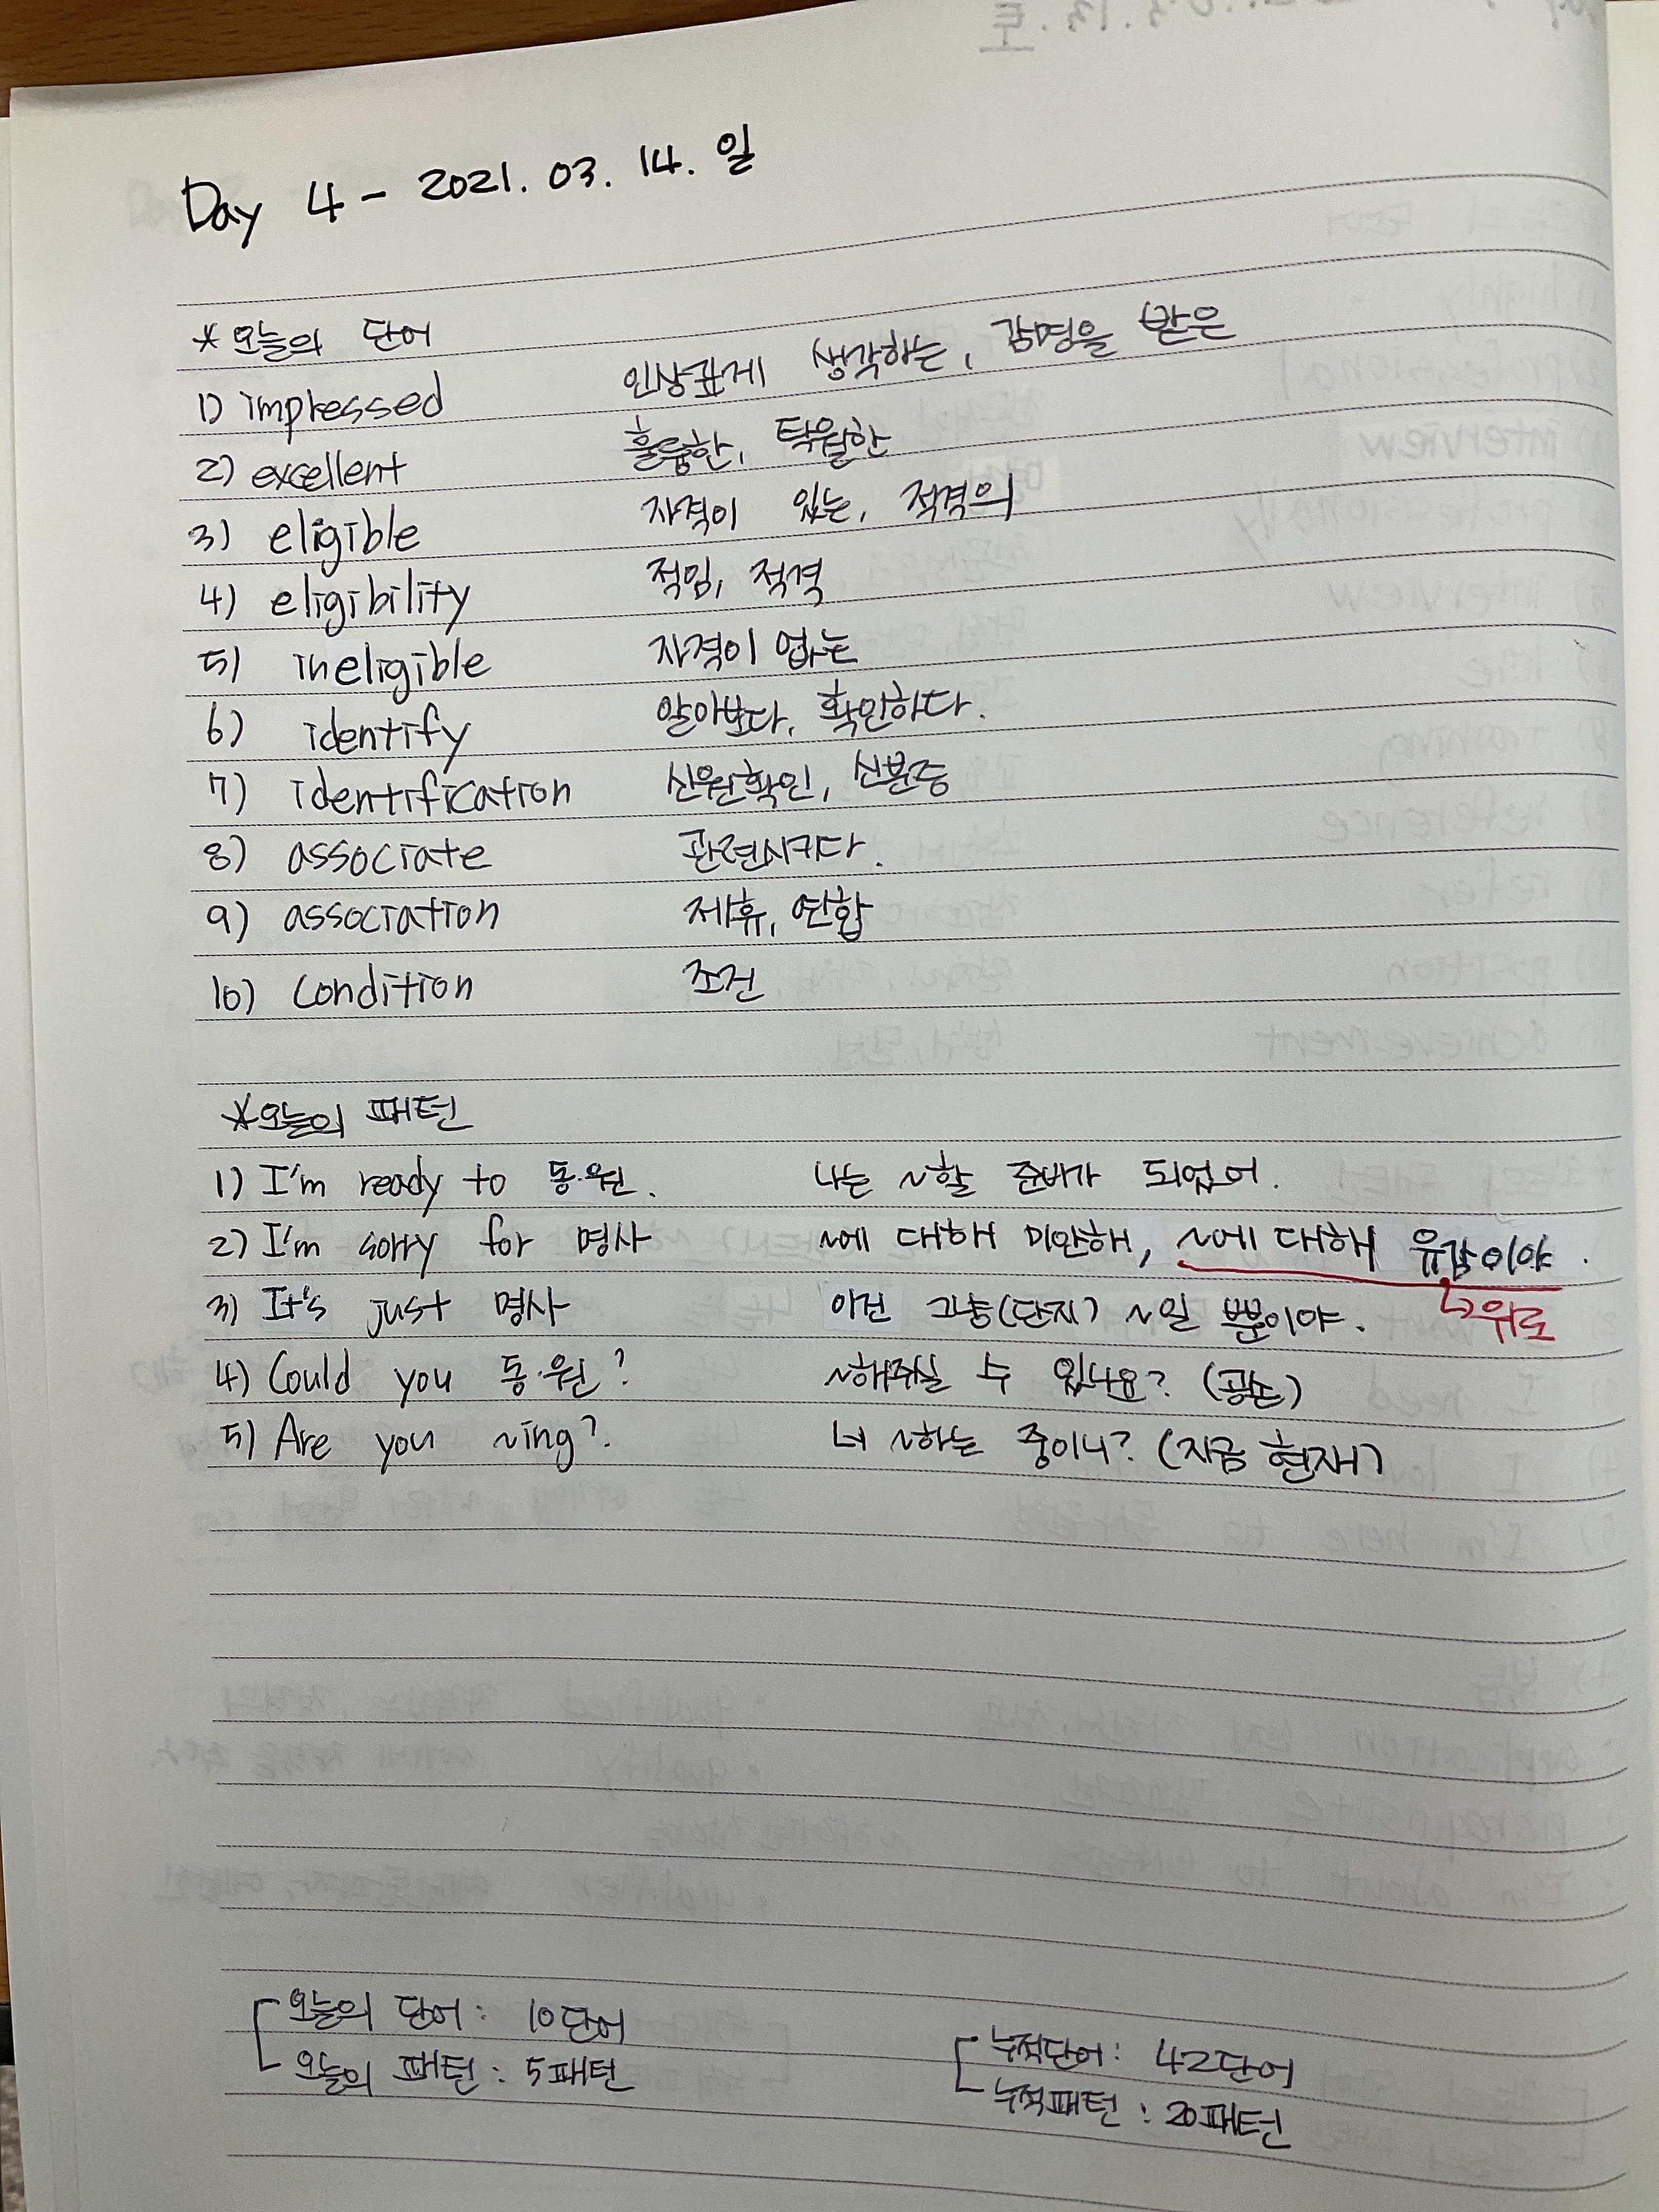 Day 4 - 2021. 03. 14. 일
* 오늘의 단어
1) impressed 인상깊게 생각하는, 감명을 받은
2) excellent 훌륭한, 탁월한
3) eligible 자격이 있는, 적격의
4) eligibility 적임, 적격
5) ineligible 자격이 없는
6) identify 알아보다, 확인하다.
7) identification 신원확인, 신분증
8) associate 관련시키다.
9) association 제휴, 연합
10) condition 조건
* 오늘의 패턴
1) I'm ready to 동·원. 나는 ~할 준비가 되었어.
2) I'm sorry for 명사 ~에 대해 미안해, ~에 대해 유감이야.
↳위로
3) It's just 명사 이건 그냥(단지) ~일 뿐이야.
4) Could you 동·원? ~해주실 수 있나요? (공손)
5) Are you ~ing? 너 ~하는 중이니? (지금 현재)
오늘의 단어 : 10단어
오늘의 패턴 : 5패턴
누적단어 : 42단어
누적패턴 : 20패턴